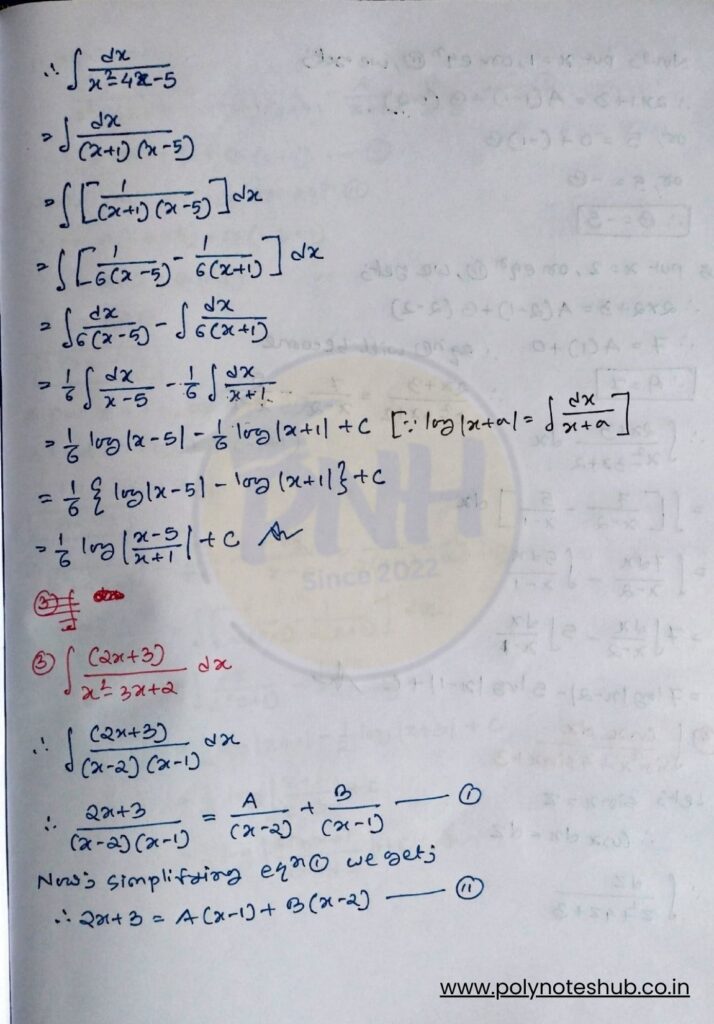 ∴ ∫ dx / x²-4x-5
= ∫ dx / (x+1) (x-5)
= ∫ [ 1 / (x+1) (x-5) ] dx
= ∫ [ 1 / 6(x-5) - 1 / 6(x+1) ] dx
= ∫ dx / 6(x-5) - ∫ dx / 6(x+1)
= 1/6 ∫ dx / x-5 - 1/6 ∫ dx / x+1
= 1/6 log|x-5| - 1/6 log|x+1| + C [∵ log|x+a| = ∫ dx / x+a ]
= 1/6 { log|x-5| - log|x+1| } + C
= 1/6 log | x-5 / x+1 | + C
PNH
Since 2022
③ ∫ (2x+3) / x²-3x+2 dx
∴ ∫ (2x+3) / (x-2) (x-1) dx
∴ 2x+3 / (x-2)(x-1) = A / (x-2) + B / (x-1) —— ①
Now; simplifying eqn ① we get;
∴ 2x+3 = A(x-1) + B(x-2) —— ⑪
www.polynoteshub.co.in